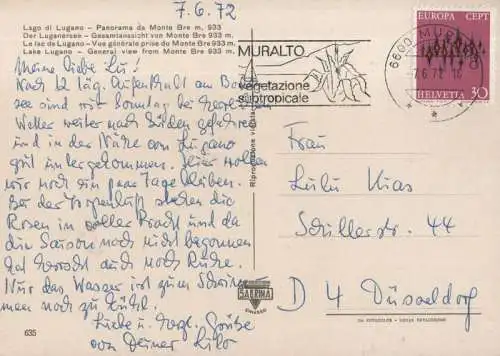 7.6.72
Lago di Lugano – Panorama da Monte Bre m. 933
Der Luganersee – Gesamtansicht von Monte Bre 933 m.
Le lac de Lugano – Vue générale prise du Monte Bre 933 m.
Lake Lugano – General view from Monte Bre 933 m.
Meine liebe Lu!
Nach 12 täg. Aufenthalt am Boden
see sind wir Sonntag bei herrlichem
Wetter weiter nach Süden gefahren
und in der Nähe von Lugano
gut untergekommen. Hier wollen
wir noch ein paar Tage bleiben.
Bei der Tropenluft stehen die
Rosen in voller Pracht und da
die Saison noch nicht begonnen
hat herrscht auch noch Ruhe.
Nur das Wasser ist zum Schwim
men noch zu kühl.
Liebe u. Grüße
von Deiner
635
MURALTO
vegetazione
subtropicale
6600 MU
-7.6.72
EUROPA CEPT
HELVETIA 30
SABRINA
Frau
Lulu Kias
Schillerstr. 44
D 4 Düsseldorf